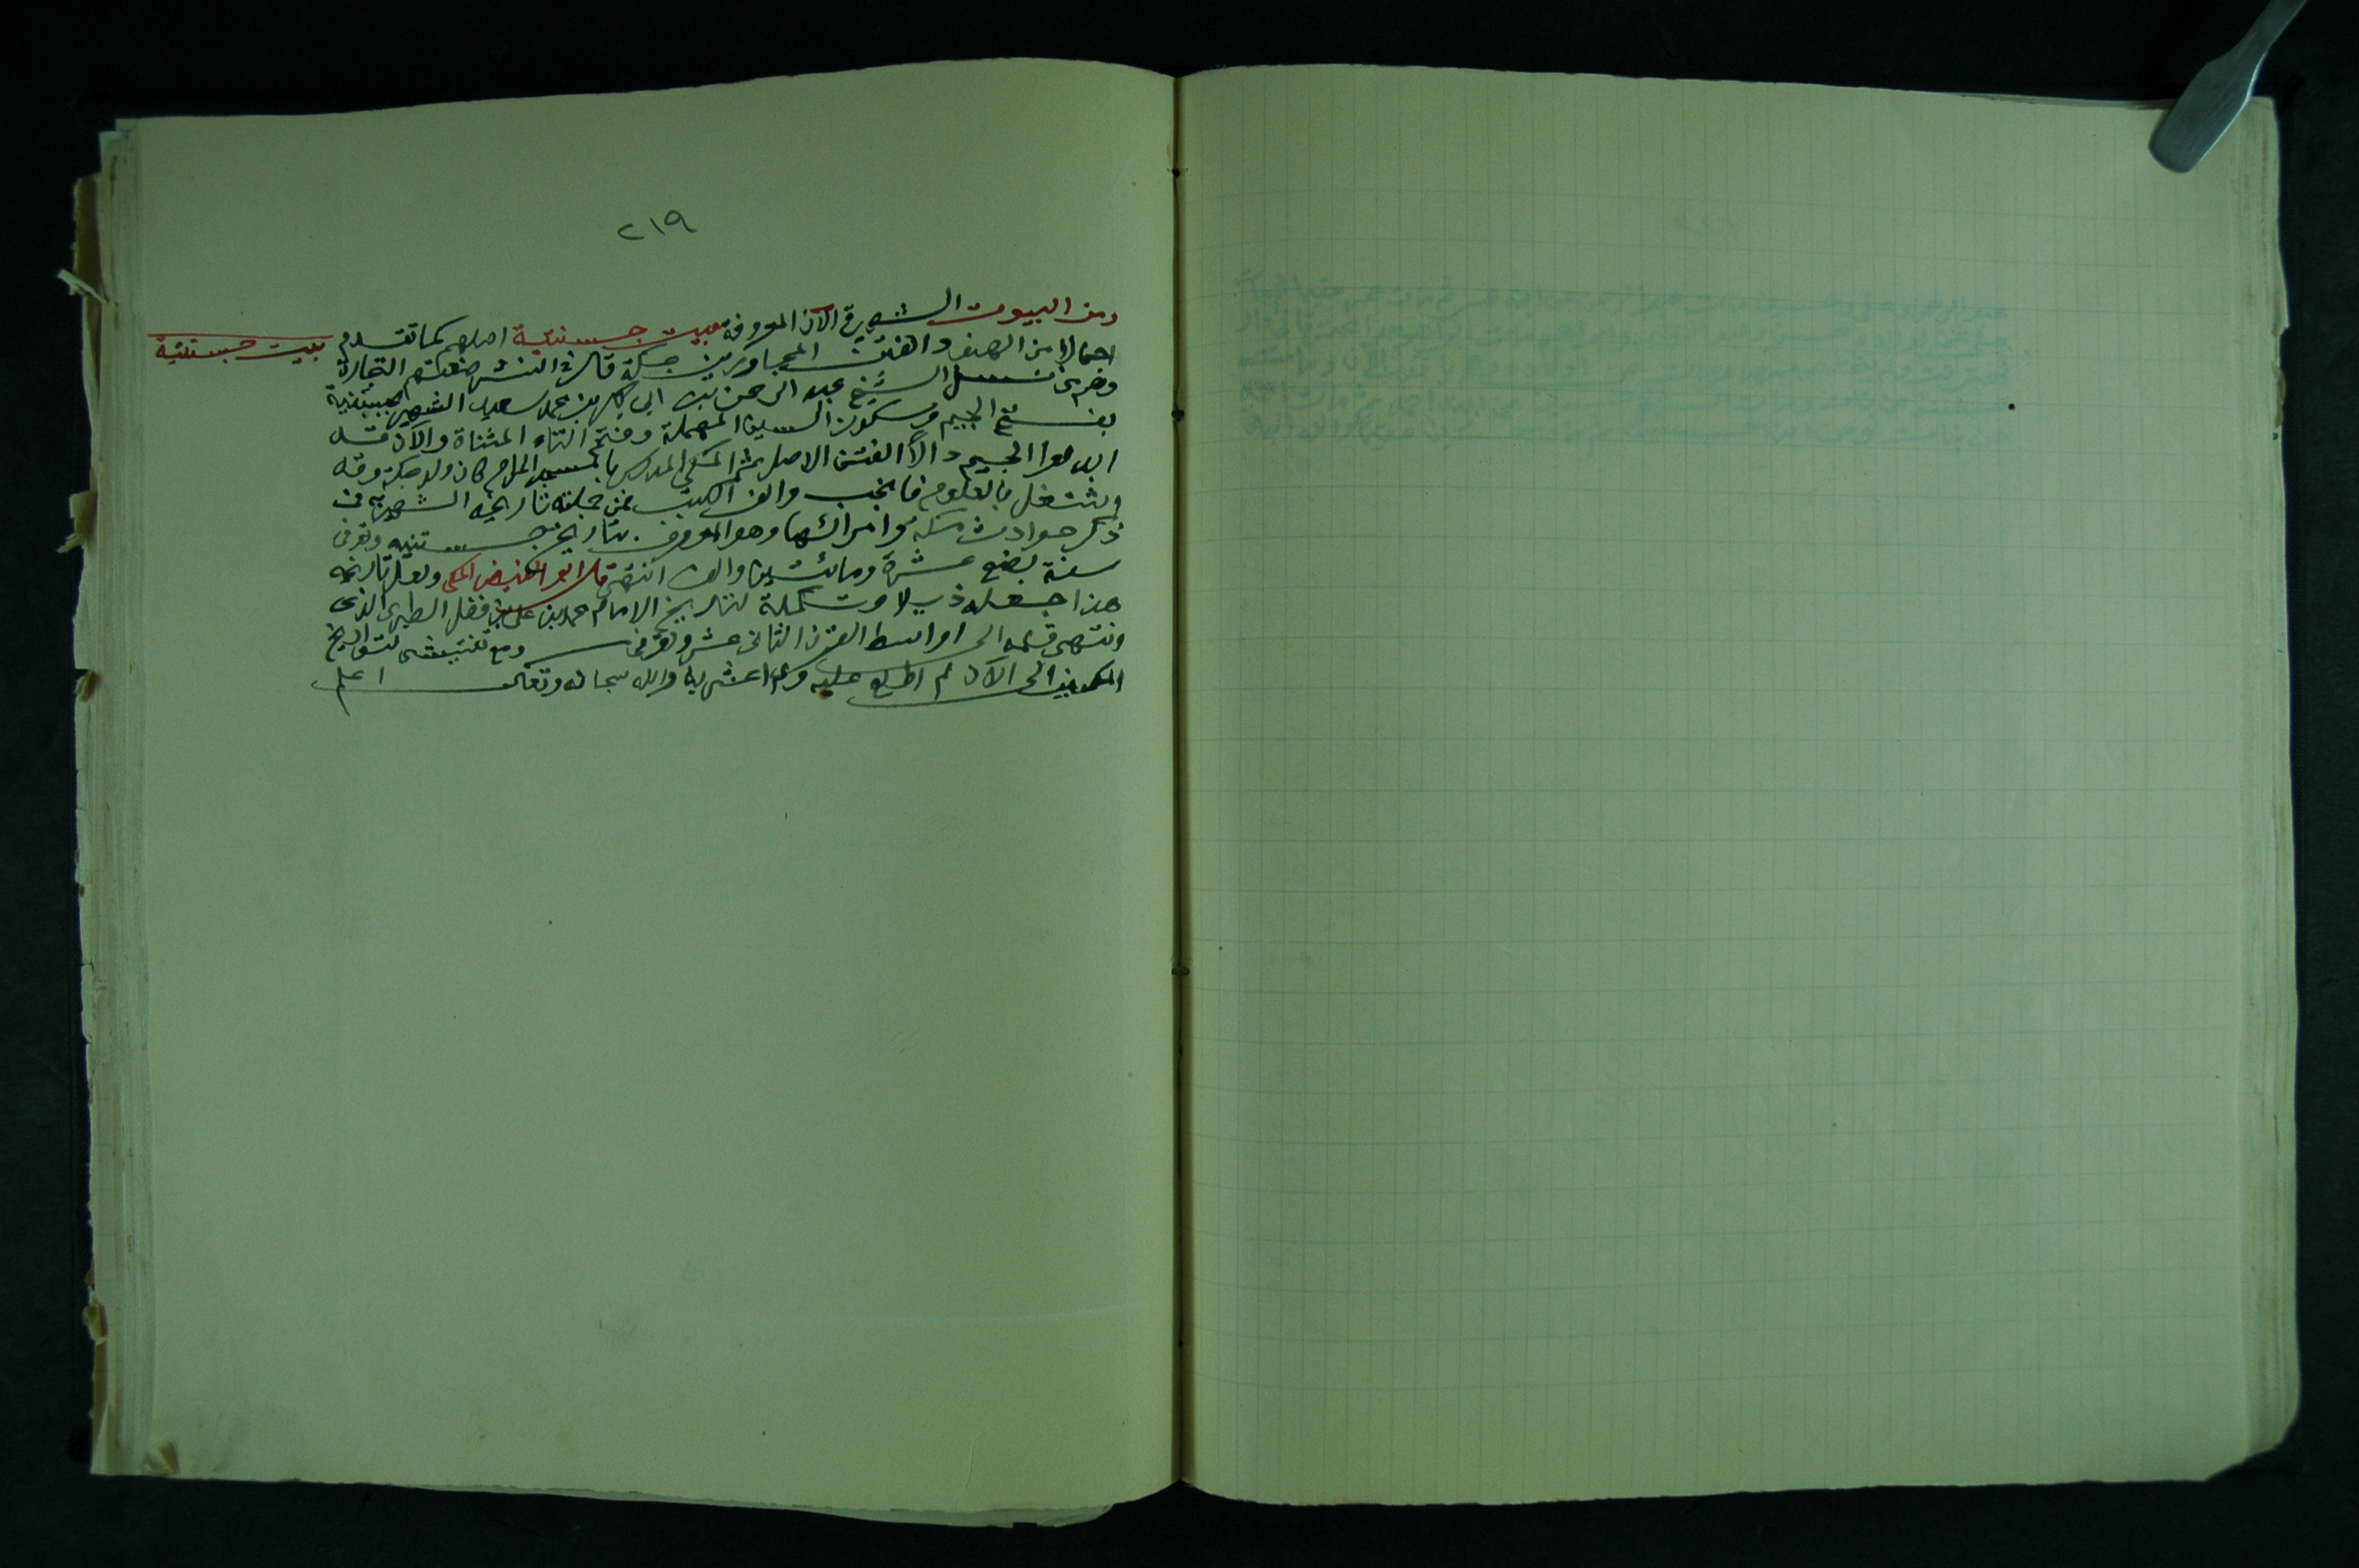 ٢١٩
ومن البيوت الشهيرة الآن المعروفة ببيت جستنية اصلهم كما تقدم
بيت جستنية
اجمالا من الهنود الفتن المجاورين بمكة قال في النشر صنعتهم التجارة
وهم من نسل الشيخ عبد الرحمن بن ابي بكر بن محمد سعيد الشهير بجستنية
بفتح الجيم وسكون السين المهملة وفتح التاء المثناة والآن قد
ابدلوا الجيم دالا الفتني الاصل ثم المكي المدرس بالمسجد الحرام كان ولد بمكة وقد
اشتغل بالعلوم فانجب والف الكتب فمن جملته تاريخه الشهير به في
ذكر حوادث مكة وامرائها وهو المعروف بتاريخ جستنيه وتوفى
سنة بضع عشرة ومائتين والف انتهى قال ابو الفيض المكي ولعل تاريخه
هذا جعله ذيلا وتكملة لتاريخ الامام محمد بن علي بن فضل الطبري الذي
وينتهى قسمه الى اواسط القرن الثاني عشر وتوفى ومع تفتيشي لتواريخ
المكيين الى الآن لم اطلع عليه ولم اعثر به والله سبحانه وتعالى اعلم